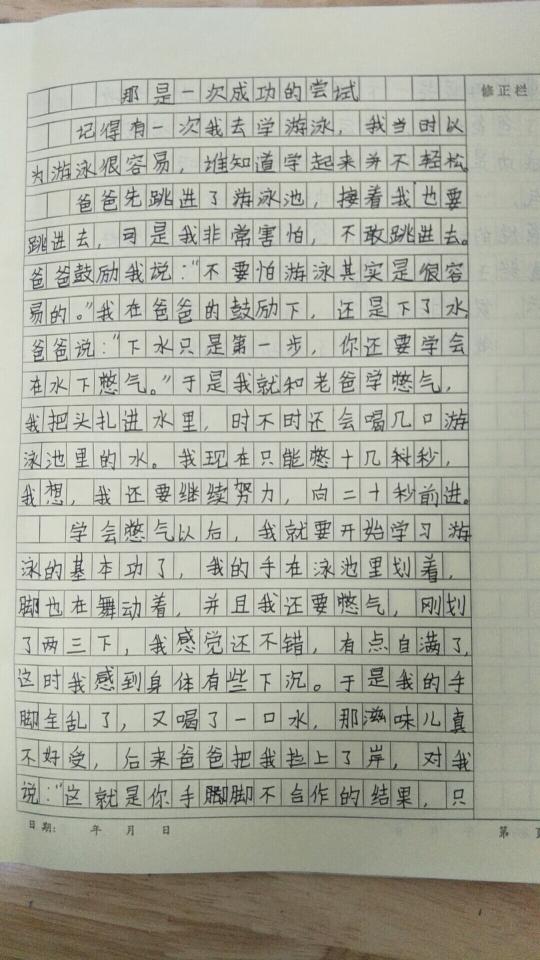 那是一次成功的尝试
修正栏
记得有一次我去学游泳，我当时以
为游泳很容易，谁知道学起来并不轻松。
爸爸先跳进了游泳池，接着我也要
跳进去，可是我非常害怕，不敢跳进去。
爸爸鼓励我说：“不要怕游泳其实是很容
易的。”我在爸爸的鼓励下，还是下了水
爸爸说：“下水只是第一步，你还要学会
在水下憋气。”于是我就和老爸学憋气，
我把头扎进水里，时不时还会喝几口游
泳池里的水。我现在只能憋十几秒，
我想，我还要继续努力，向二十秒前进。
学会憋气以后，我就要开始学习游
泳的基本功了，我的手在泳池里划着，
脚也在舞动着，并且我还要憋气，刚划
了两三下，我感觉还不错，有点自满了，
这时我感到身体有些下沉。于是我的手
脚全乱了，又喝了一口水，那滋味儿真
不好受，后来爸爸把我拉上了岸，对我
说：“这就是你手脚不合作的结果，只
日期： 年 月 日
第 页